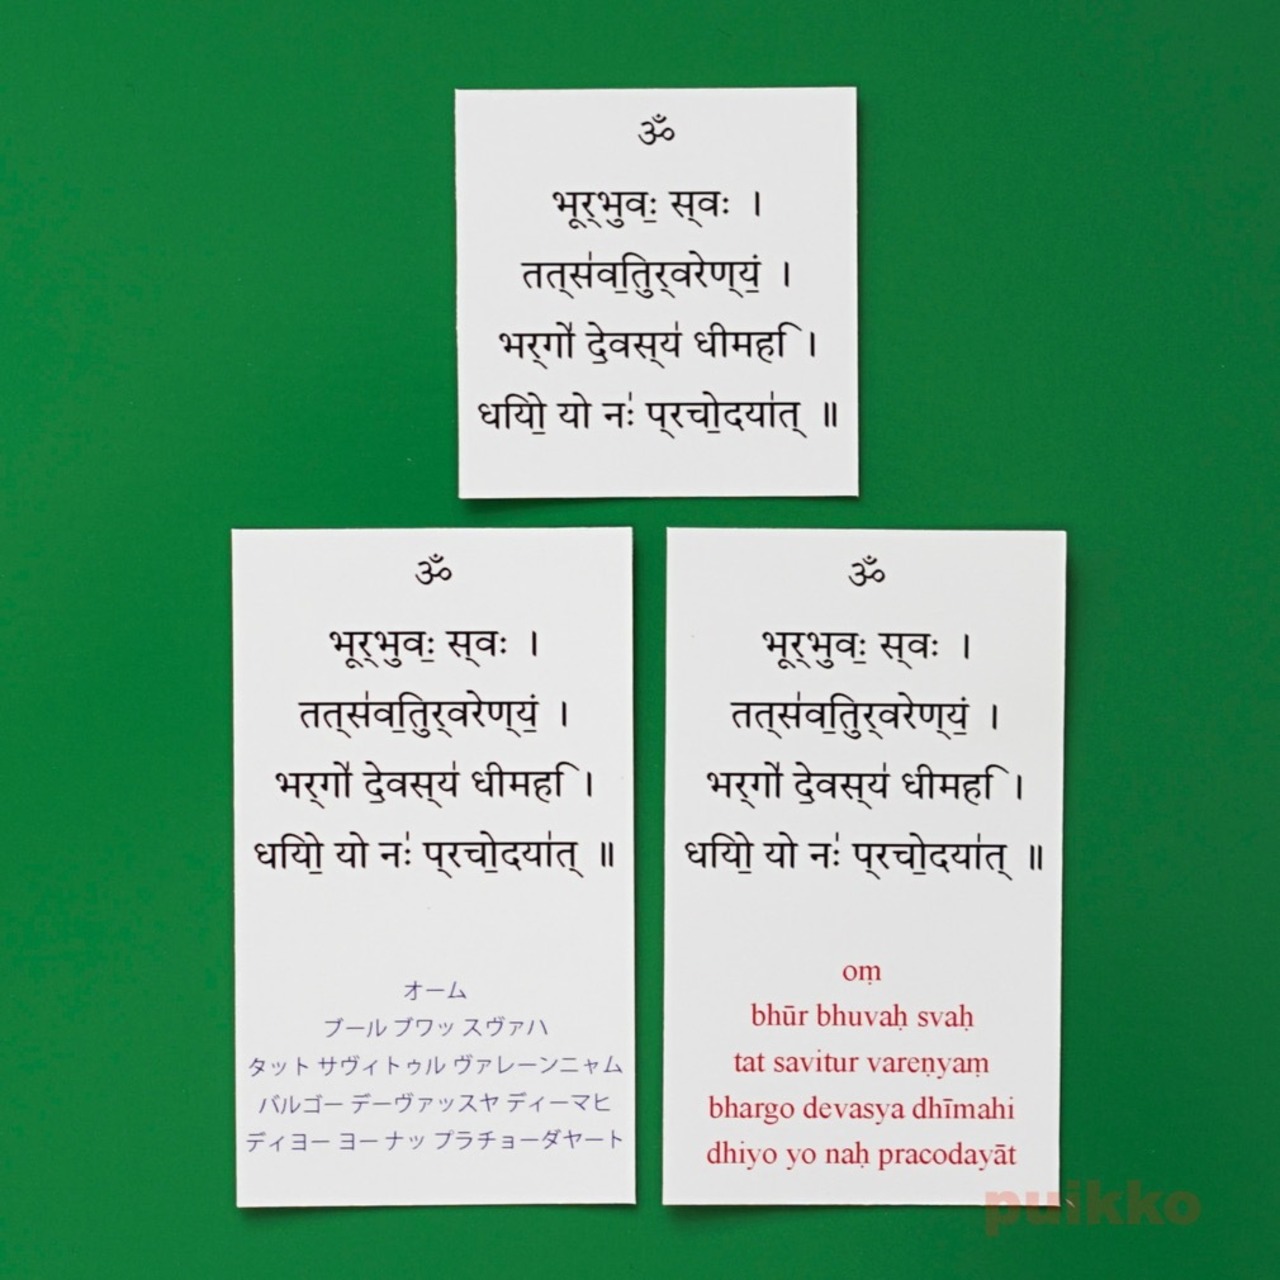 ॐ
भूर्‌भुवः॒ स्‌वः ।
तत्‌स॑वि॒तुर्‌वरेण्‌यं॒ ।
भर्‌गो॑ दे॒वस्‌य॑ धीमहि ।
धियो॒ यो नः॑ प्‌रचो॒दया॑त् ॥
ॐ
भूर्‌भुवः॒ स्‌वः ।
तत्‌स॑वि॒तुर्‌वरेण्‌यं॒ ।
भर्‌गो॑ दे॒वस्‌य॑ धीमहि ।
धियो॒ यो नः॑ प्‌रचो॒दया॑त् ॥
オーム
ブール ブワッ スヴァハ
タット サヴィトゥル ヴァレーンニャム
バルゴー デーヴァッスヤ ディーマヒ
ディヨー ヨー ナッ プラチョーダヤート
ॐ
भूर्‌भुवः॒ स्‌वः ।
तत्‌स॑वि॒तुर्‌वरेण्‌यं॒ ।
भर्‌गो॑ दे॒वस्‌य॑ धीमहि ।
धियो॒ यो नः॑ प्‌रचो॒दया॑त् ॥
oṃ
bhūr bhuvaḥ svaḥ
tat savitur vareṇyaṃ
bhargo devasya dhīmahi
dhiyo yo naḥ pracodayāt
puikko